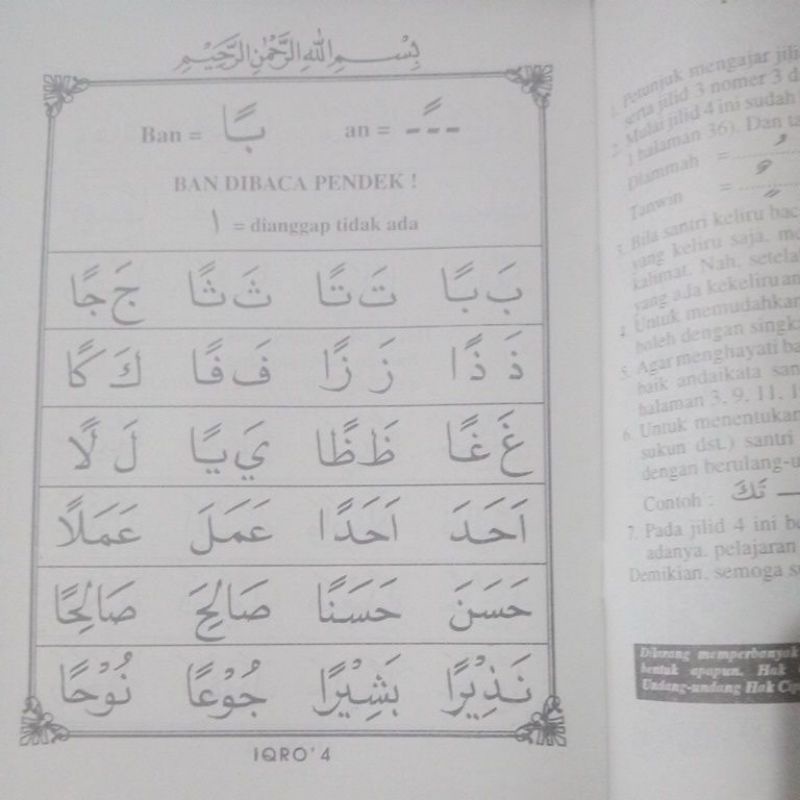 بِسْمِ اللهِ الرَّحْمٰنِ الرَّحِيْمِ
Ban = بًا an = ـًـ
BAN DIBACA PENDEK !
ا = dianggap tidak ada
بَ بًا تَ تًا ثَ ثًا جَ جًا
ذَ ذًا زَ زًا فَ فًا كَ كًا
غَ غًا ظَ ظًا يَ يًا لَ لًا
اَحَدَ اَحَدًا عَمَلَ عَمَلًا
حَسَنَ حَسَنًا صَالِحَ صَالِحًا
نَذِيْرًا بَشِيْرًا جُوْعًا نُوْحًا
IQRO' 4
1. Petunjuk mengajar jili
serta jilid 3 nomer 3 d
2. Mulai jilid 4 ini sudah
1 halaman 36). Dan ta
Dlammah =
Tanwin =
3. Bila santri keliru bac
yang keliru saja, me
kalimat. Nah, setela
yang ada kekeliruan
4. Untuk memudahkan
boleh dengan singk
5. Agar menghayati ba
baik andaikata san
halaman 3, 9, 11, 1
6. Untuk menentukan
sukun dst.) santri
dengan berulang-u
Contoh : تَكَ
7. Pada jilid 4 ini be
adanya, pelajaran
Demikian, semoga su
Dilarang memperbanyak
bentuk apapun. Hak
Undang-undang Hak Cip